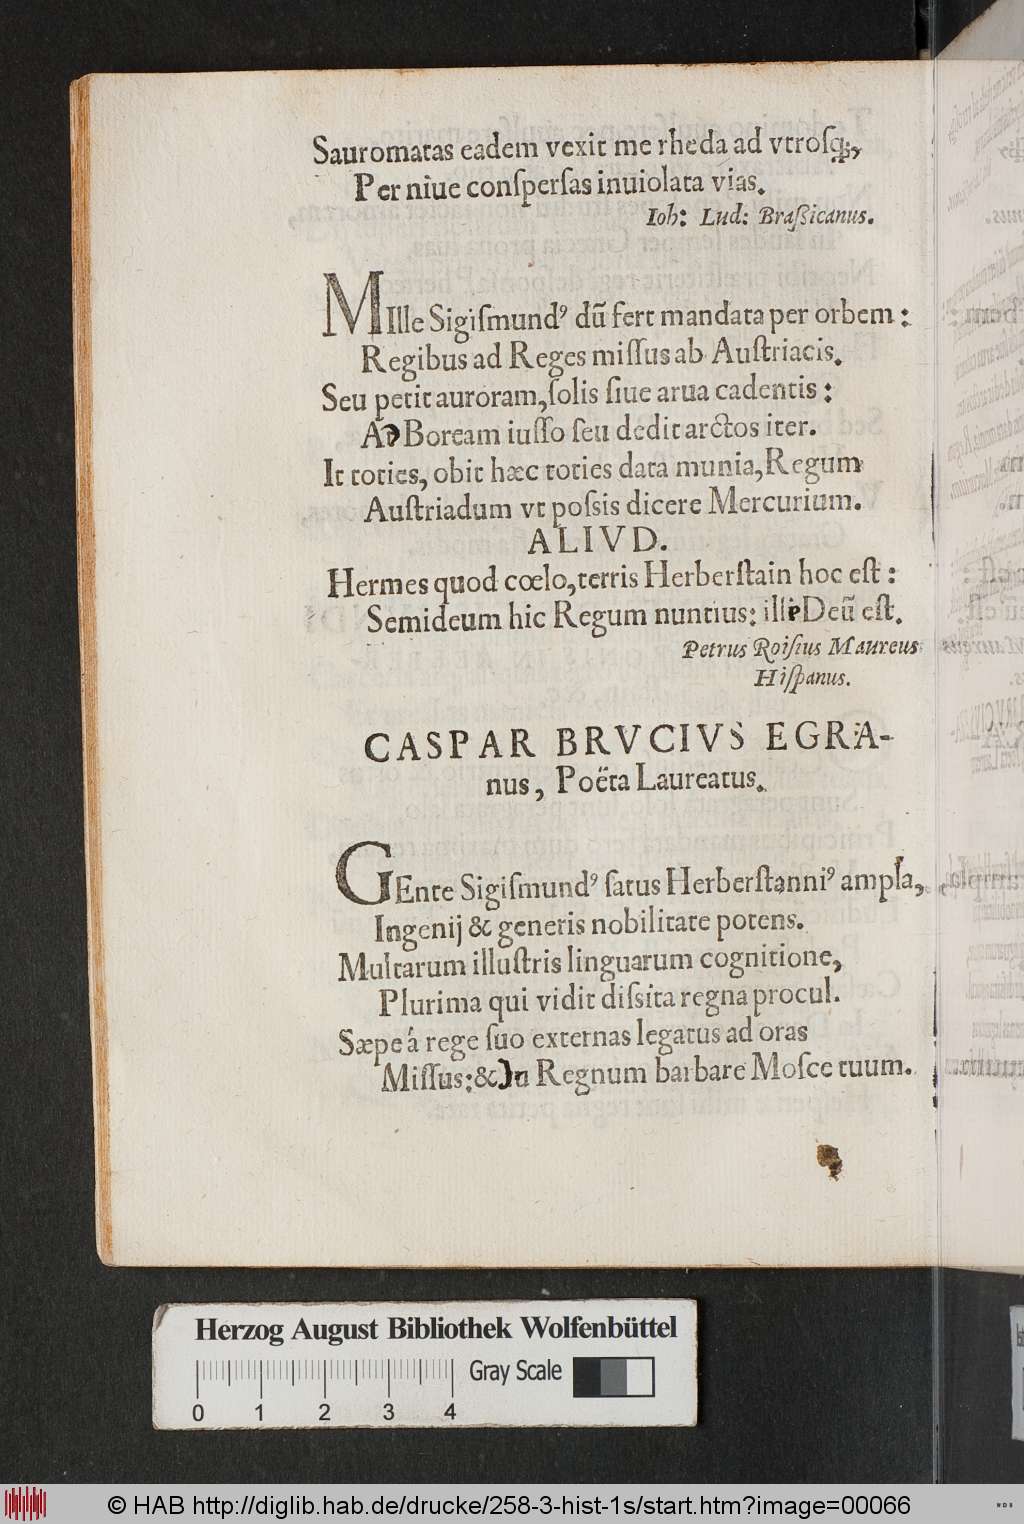 Sauromatas eadem vexit me rheda ad vtroſq;,
Per niue conſperſas inuiolata vias.
Ioh: Lud: Braſsicanus.
MIlle Sigiſmundꝰ dū fert mandata per orbem:
Regibus ad Reges miſſus ab Auſtriacis.
Seu petit auroram, ſolis ſiue arua cadentis:
Ad Boream iuſſo ſeu dedit arctos iter.
It toties, obit hæc toties data munia, Regum
Auſtriadum vt poſsis dicere Mercurium.
ALIVD.
Hermes quod cœlo, terris Herberſtain hoc eſt:
Semideum hic Regum nuntius: ille Deū eſt.
Petrus Roiſius Maureus
Hiſpanus.
CASPAR BRVCIVS EGRA-
nus, Poëta Laureatus.
GEnte Sigiſmundꝰ ſatus Herberſtanniꝰ ampla,
Ingenij & generis nobilitate potens.
Multarum illuſtris linguarum cognitione,
Plurima qui vidit diſsita regna procul.
Sæpe á rege ſuo externas legatus ad oras
Miſſus: & In Regnum barbare Moſce tuum.
Herzog August Bibliothek Wolfenbüttel
Gray Scale
0 1 2 3 4
© HAB http://diglib.hab.de/drucke/258-3-hist-1s/start.htm?image=00066